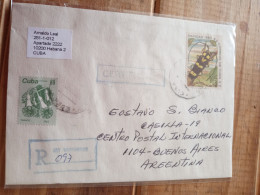 Arnaldo Leal
Apartado 3222
10200 Habana 2
CUBA
Cuba
R
097
EUSTAQO S. BIANCO
CASILLA-19
CENTRO POSTAL INTERNACIONAL
1104-BUENOS AIRES
ARGENTINA